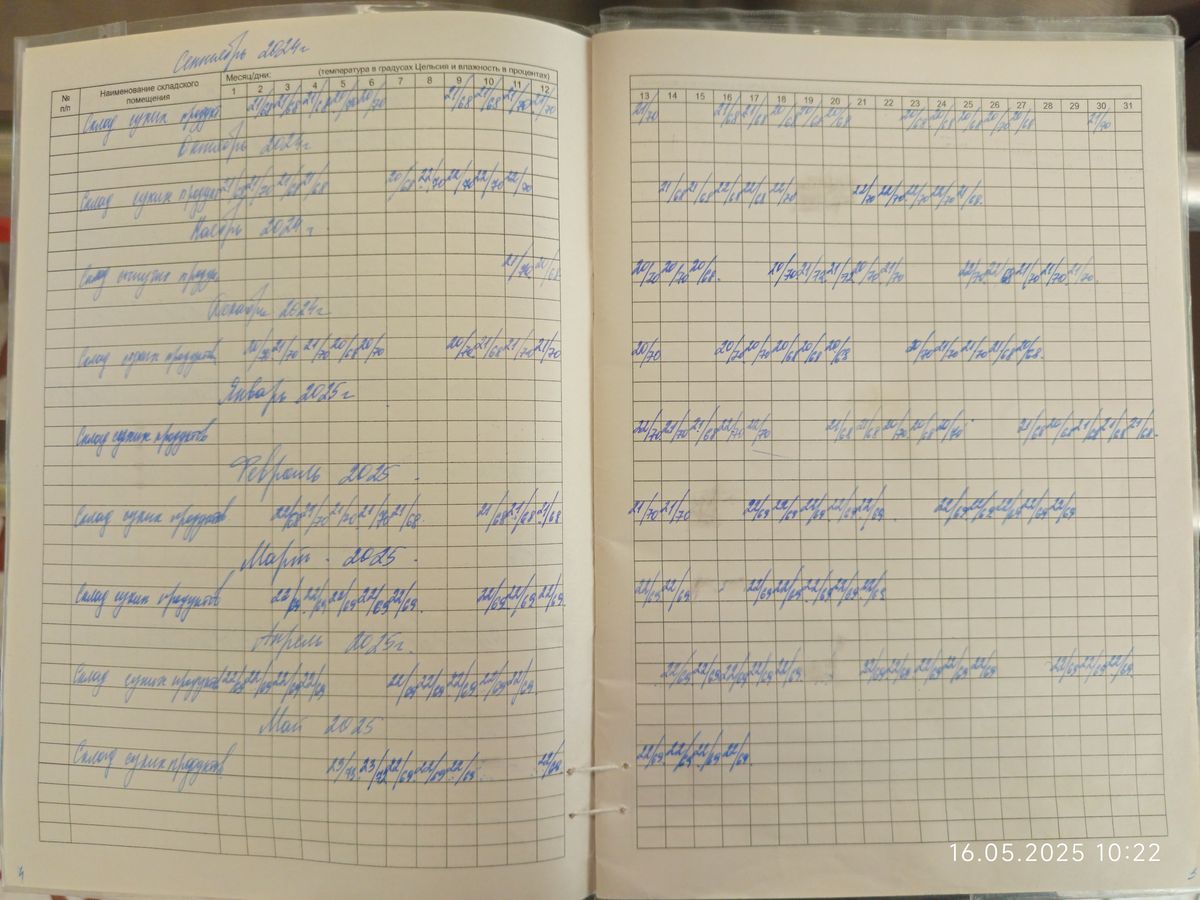 Сентябрь 2024г
№ п/п Наименование складского помещения Месяц/дни: (температура в градусах Цельсия и влажность в процентах)
1 2 3 4 5 6 7 8 9 10 11 12
13 14 15 16 17 18 19 20 21 22 23 24 25 26 27 28 29 30 31
Склад сухих продукт 21/68 20/70 21/68 21/68 21/70
21/70 21/68 21/68 20/68 20/68 20/68 20/68 20/68 20/68 20/70 20/68 21/70
Октябрь 2024г
Склад сухих продукт 21/68 21/70 21/68 21/68 20/68 22/70 22/70 22/70 22/70
21/68 21/68 22/68 22/68 22/70 22/70 22/70 22/70 22/70 21/68
2024г.
Склад продук 21/70 20/68
20/70 20/70 20/68 20/70 21/72 21/72 20/70 21/70 22/70 21/70 21/70 21/70
Декабрь 2024г
Склад сухих продуктов 20/70 21/70 21/70 20/68 20/70 20/70 21/68 21/70 21/70
20/70 20/70 20/70 20/68 20/68 20/68 20/70 21/70 21/70 21/68 20/68
Январь 2025г
Склад сухих продуктов
22/70 21/70 21/68 22/70 22/70 21/68 21/68 20/70 20/68 21/68 20/68 21/68 21/68 21/68
Февраль 2025
Склад сухих продуктов 22/68 21/70 21/70 21/70 21/68 21/68 21/68 21/68
21/70 21/70 22/69 22/69 22/69 22/69 22/69 22/69 22/69 22/69 22/69 22/69
Март - 2025
Склад сухих продуктов 22/69 22/69 22/69 22/69 22/69 22/69 22/69 22/69
22/69 22/69 22/69 22/69 22/69 22/69 22/69
Апрель 2025г.
Склад сухих продукт 22/69 22/69 22/69 22/69 22/69 22/69 22/69 22/69 22/69
22/69 22/69 22/69 22/69 22/69 22/69 22/69 22/69 22/69 22/69 22/69 22/69 22/69
Май 2025
Склад сухих продуктов 23/73 23/72 22/69 22/69 22/69 22/69
22/69 22/69 22/69 22/69
4
5
16.05.2025 10:22